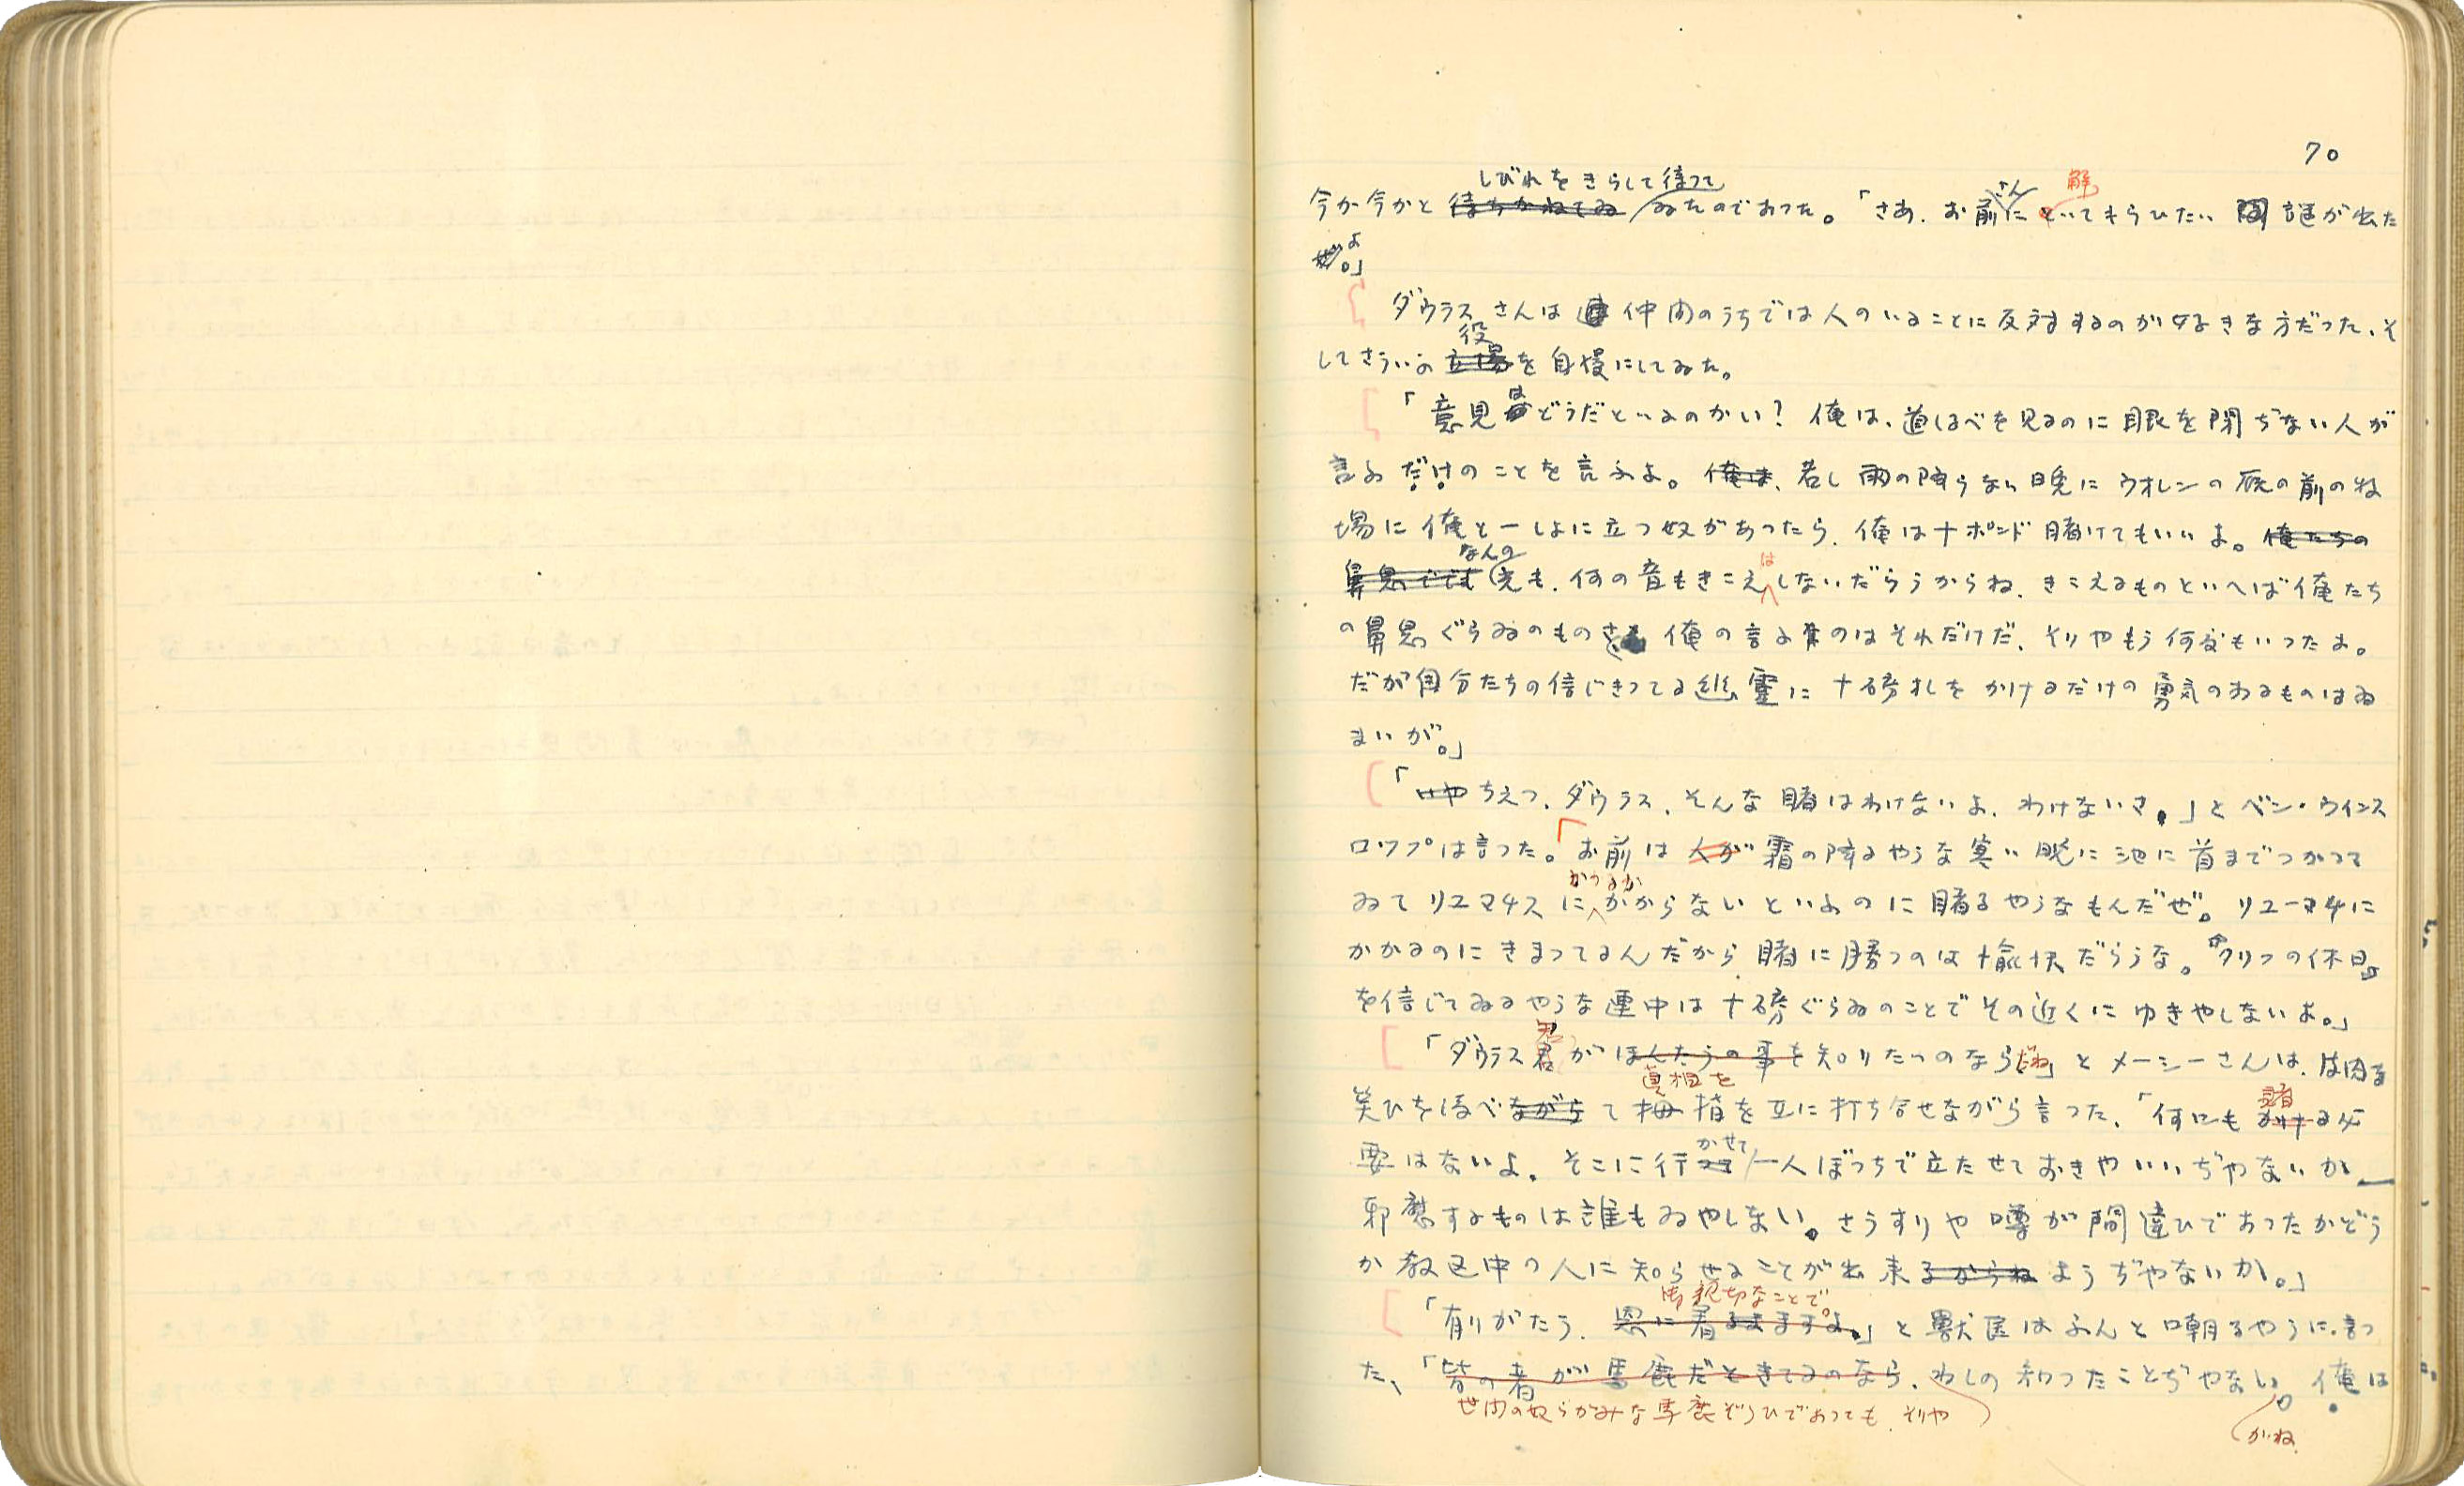 70
しびれをきらして待つて
今か今かと待ちかねてゐゐたのであつた。「さあ、お前さんに解といてもらひたい謎が出た
ぜよ。」
ダウラスさんは仲間のうちでは人のいふことに反対するのが好きな方だつた、そ
役
してさういふ立場を自慢にしてゐた。
「意見はどうだといふのかい？ 俺は、道しるべを見るのに眼を閉ぢない人が
言ふだけのことを言ふよ。俺は、若し雨の降らない晩にウオレンの厩の前の牧
場に俺と一しよに立つ奴があつたら、俺は十ポンド賭けてもいいよ。俺たちの
なんの は
鼻息でも光も、何の音もきこえしないだらうからね、きこえるものといへば俺たち
の鼻息ぐらゐのものさ 俺の言ふのはそれだけだ、そりやもう何度もいつたよ。
だが自分たちの信じきつてる幽霊に十磅札をかけるだけの勇気のあるものはゐ
まいが。」
「いやちえつ、ダウラス、そんな賭はわけないよ、わけないさ。」とベン・ウインス
ロツプは言つた。「お前は人が霜の降るやうな寒い晩に池に首までつかつて
かかるか
ゐてリユマチスにかからないといふのに賭るやうなもんだぜ。リユーマチに
かかるのにきまつてるんだから賭に勝つのは愉快だらうな。『クリフの休日』
を信じてゐるやうな連中は十磅ぐらゐのことでその近くにゆきやしないよ。」
「ダウラス君がほんたうの事を知りたいのならだね」とメーシーさんは、皮肉な
真相を 賭
笑ひをうべながらて拇指を互に打ち合せながら言つた、「何にもかける必
かせて
要はないよ。そこに行つて一人ぼつちで立たせておきやいいぢやないか—
邪魔するものは誰もゐやしない。さうすりや噂が間違ひであつたかどう
か教区中の人に知らせることが出来るからねようぢやないか。」
御親切なことで。
「有りがたう、恩に着るますよ。」と獣医はふんと嘲るやうに言つ
た、「皆の者が馬鹿だときてるのなら、わしの知つたことぢやない。俺は
世間の奴らがみな馬鹿ぞろひであつても、そりや
がね